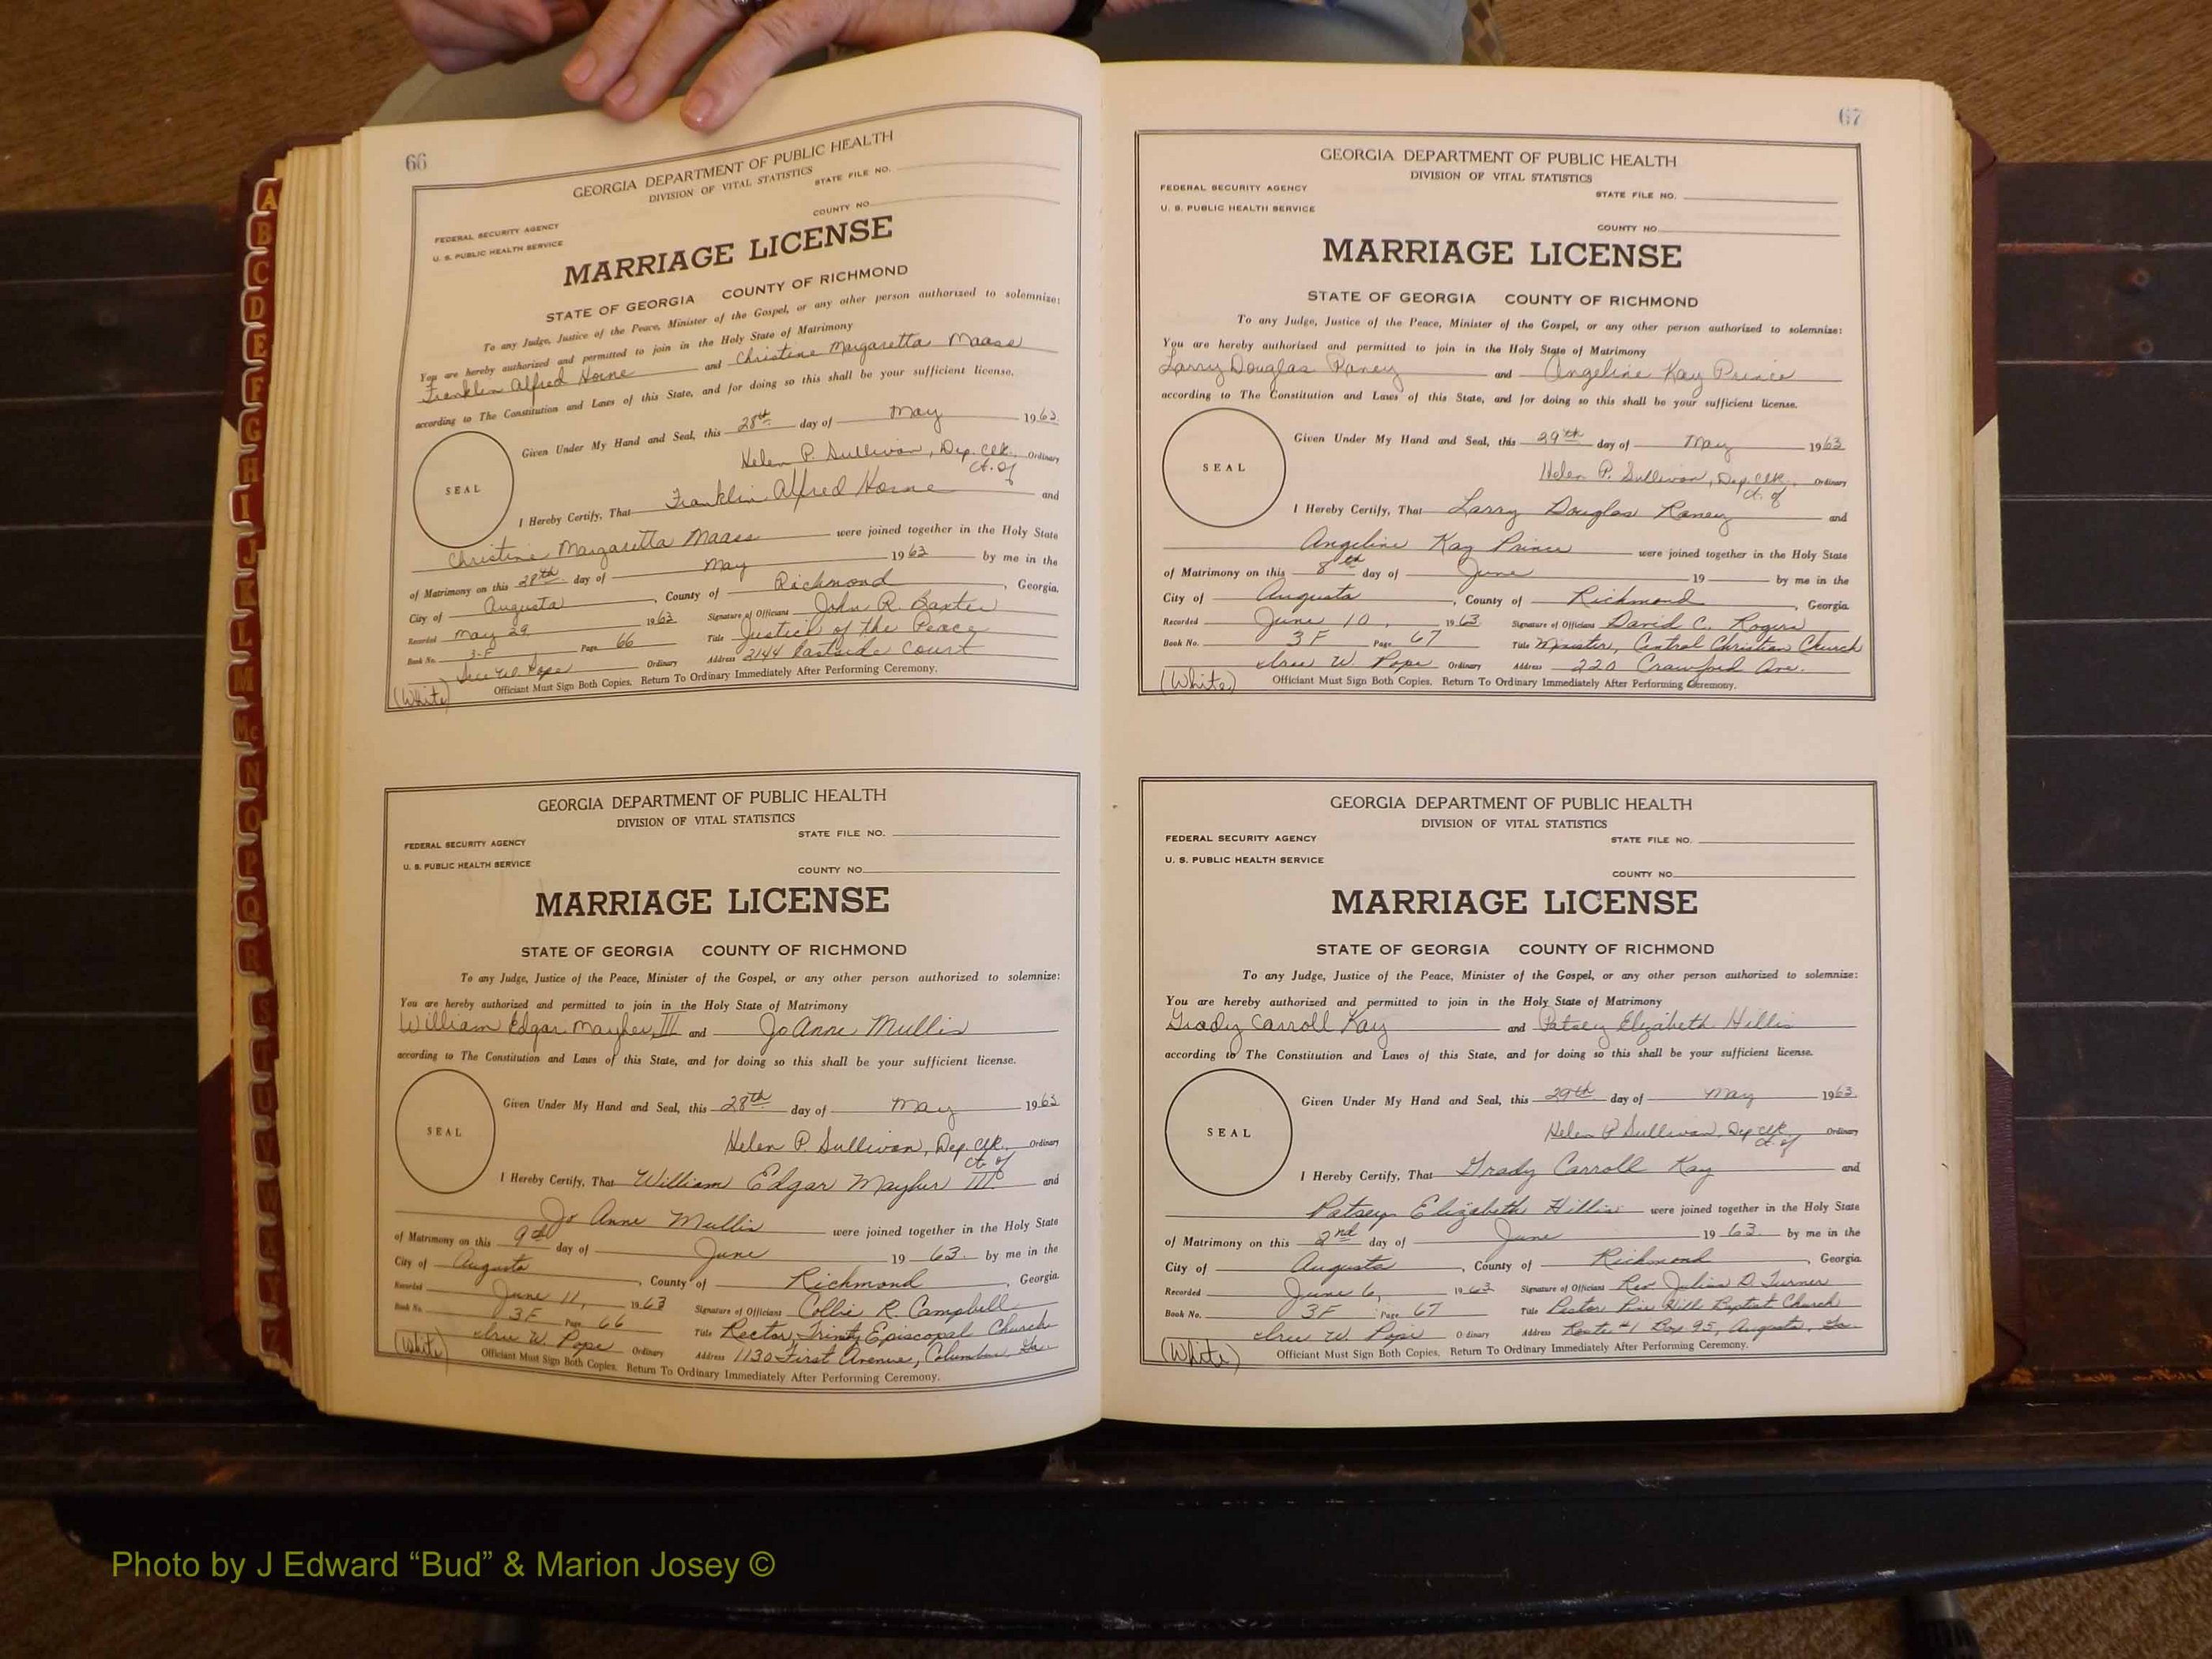 66
GEORGIA DEPARTMENT OF PUBLIC HEALTH
DIVISION OF VITAL STATISTICS
STATE FILE NO.
FEDERAL SECURITY AGENCY
COUNTY NO.
U. S. PUBLIC HEALTH SERVICE
MARRIAGE LICENSE
STATE OF GEORGIA COUNTY OF RICHMOND
To any Judge, Justice of the Peace, Minister of the Gospel, or any other person authorized to solemnize:
You are hereby authorized and permitted to join in the Holy State of Matrimony
Franklin Alfred Horne and Christine Margaretta Maass
according to The Constitution and Laws of this State, and for doing so this shall be your sufficient license.
Given Under My Hand and Seal, this 28th day of May 1963.
Helen P. Sullivan, Dep. Clk. Ordinary
Ct. of
SEAL
I Hereby Certify, That Franklin Alfred Horne and
Christine Margaretta Maass were joined together in the Holy State
of Matrimony on this 28th day of May 1963 by me in the
City of Augusta, County of Richmond, Georgia.
Recorded May 29, 1963 Signature of Officiant John R. Baxter
Book No. 3-F Page 66 Title Justice of the Peace
Ordinary Address 2144 Eastside Court
(White) Officiant Must Sign Both Copies. Return To Ordinary Immediately After Performing Ceremony.
GEORGIA DEPARTMENT OF PUBLIC HEALTH
DIVISION OF VITAL STATISTICS
FEDERAL SECURITY AGENCY STATE FILE NO.
U. S. PUBLIC HEALTH SERVICE
COUNTY NO.
MARRIAGE LICENSE
STATE OF GEORGIA COUNTY OF RICHMOND
To any Judge, Justice of the Peace, Minister of the Gospel, or any other person authorized to solemnize:
You are hereby authorized and permitted to join in the Holy State of Matrimony
William Edgar Mayher, III and JoAnne Mullis
according to The Constitution and Laws of this State, and for doing so this shall be your sufficient license.
Given Under My Hand and Seal, this 28th day of May 1963
Helen P. Sullivan, Dep. Clk. Ordinary
Ct. of
SEAL
I Hereby Certify, That William Edgar Mayher III and
Jo Anne Mullis were joined together in the Holy State
of Matrimony on this 9th day of June 1963. by me in the
City of Augusta, County of Richmond, Georgia.
Recorded June 11, 1963 Signature of Officiant Collie R. Campbell
Book No. 3F Page 66 Title Rector, Trinity Episcopal Church
W. Pope Ordinary Address 1130 First Avenue, Columbus, Ga.
(White) Officiant Must Sign Both Copies. Return To Ordinary Immediately After Performing Ceremony.
67
GEORGIA DEPARTMENT OF PUBLIC HEALTH
DIVISION OF VITAL STATISTICS
FEDERAL SECURITY AGENCY STATE FILE NO.
U. S. PUBLIC HEALTH SERVICE
COUNTY NO.
MARRIAGE LICENSE
STATE OF GEORGIA COUNTY OF RICHMOND
To any Judge, Justice of the Peace, Minister of the Gospel, or any other person authorized to solemnize:
You are hereby authorized and permitted to join in the Holy State of Matrimony
Larry Douglas Raney and Angeline Kay Prince
according to The Constitution and Laws of this State, and for doing so this shall be your sufficient license.
Given Under My Hand and Seal, this 29th day of May 1963
Helen P. Sullivan, Dep. Clk. Ordinary
Ct. of
SEAL
I Hereby Certify, That Larry Douglas Raney and
Angeline Kay Prince were joined together in the Holy State
of Matrimony on this 8th day of June 19 by me in the
City of Augusta, County of Richmond, Georgia
Recorded June 10, 1963. Signature of Officiant David C. Rogers
Book No. 3F Page 67 Title Minister, Central Christian Church
W. Pope Ordinary Address 220 Crawford Ave.
(White) Officiant Must Sign Both Copies. Return To Ordinary Immediately After Performing Ceremony.
GEORGIA DEPARTMENT OF PUBLIC HEALTH
DIVISION OF VITAL STATISTICS
FEDERAL SECURITY AGENCY STATE FILE NO.
U. S. PUBLIC HEALTH SERVICE
COUNTY NO.
MARRIAGE LICENSE
STATE OF GEORGIA COUNTY OF RICHMOND
To any Judge, Justice of the Peace, Minister of the Gospel, or any other person authorized to solemnize:
You are hereby authorized and permitted to join in the Holy State of Matrimony
Grady Carroll Kay and Patsey Elizabeth Hillis
according to The Constitution and Laws of this State, and for doing so this shall be your sufficient license.
Given Under My Hand and Seal, this 29th day of May 1963.
Helen P Sullivan, Dep Clk. Ordinary
Ct. of
SEAL
I Hereby Certify, That Grady Carroll Kay and
Patsey Elizabeth Hillis were joined together in the Holy State
of Matrimony on this 2nd day of June 1963. by me in the
City of Augusta, County of Richmond, Georgia
Recorded June 6, 1963 Signature of Officiant Rev Julian D. Turner
Book No. 3F Page 67 Title Pastor Pine Hill Baptist Church
W. Pope Ordinary Address Route #1 Box 95, Augusta, Ga.
(White) Officiant Must Sign Both Copies. Return To Ordinary Immediately After Performing Ceremony.
A
B
C
D
E
F
G
H
I
J
K
L
M
Mc
N
O
P
Q
R
S
Photo by J Edward “Bud” & Marion Josey ©